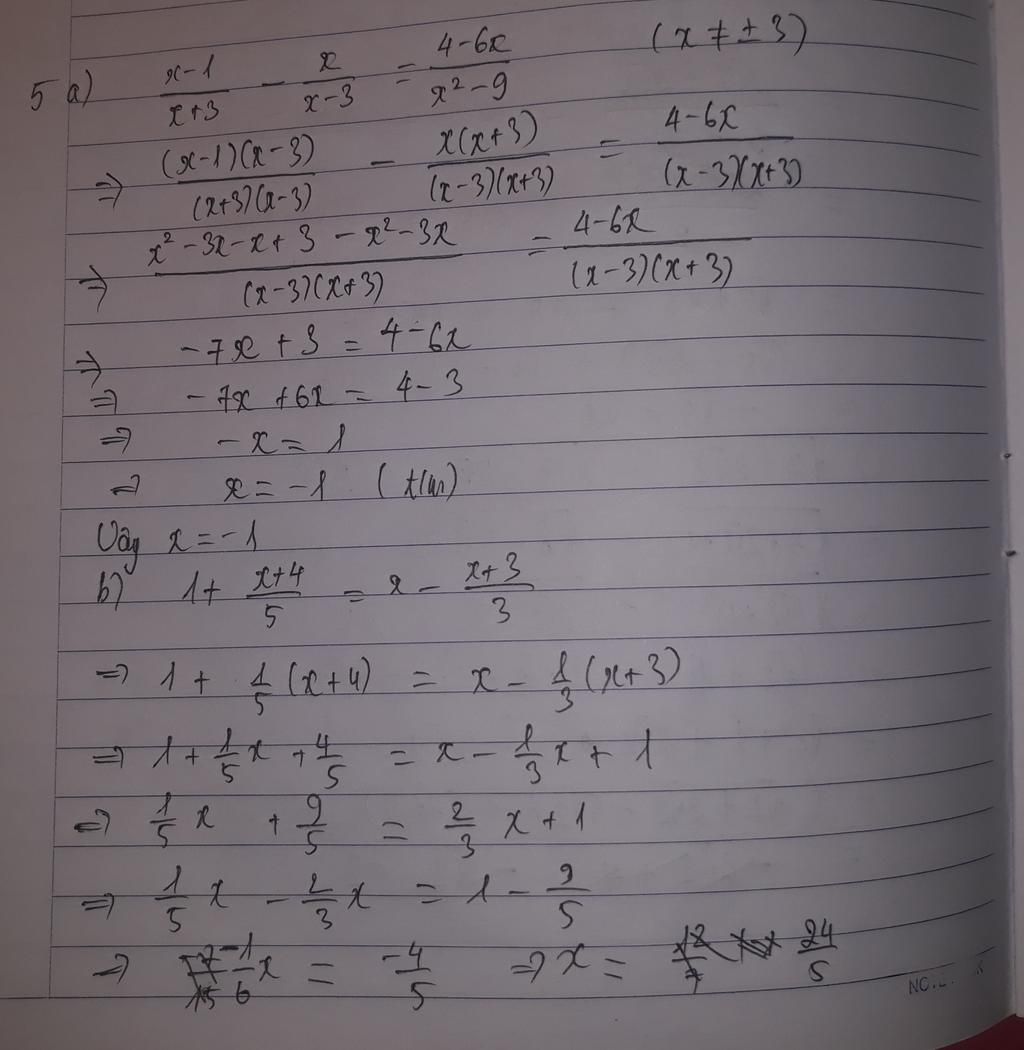 5 a) (x-1)/(x+3) - x/(x-3) = (4-6x)/(x²-9) (x ≠ ± 3)
=> ((x-1)(x-3))/((x+3)(x-3)) - (x(x+3))/((x-3)(x+3)) = (4-6x)/((x-3)(x+3))
=> (x²-3x-x+3-x²-3x)/((x-3)(x+3)) = (4-6x)/((x-3)(x+3))
=> -7x + 3 = 4-6x
=> -7x + 6x = 4-3
=> -x = 1
=> x = -1 (t/m)
Vậy x = -1
b) 1 + (x+4)/5 = x - (x+3)/3
=> 1 + 1/5 (x+4) = x - 1/3 (x+3)
=> 1 + 1/5 x + 4/5 = x - 1/3 x + 1
=> 1/5 x + 9/5 = 2/3 x + 1
=> 1/5 x - 2/3 x = 1 - 9/5
=> -1/6 x = -4/5 => x = 24/5